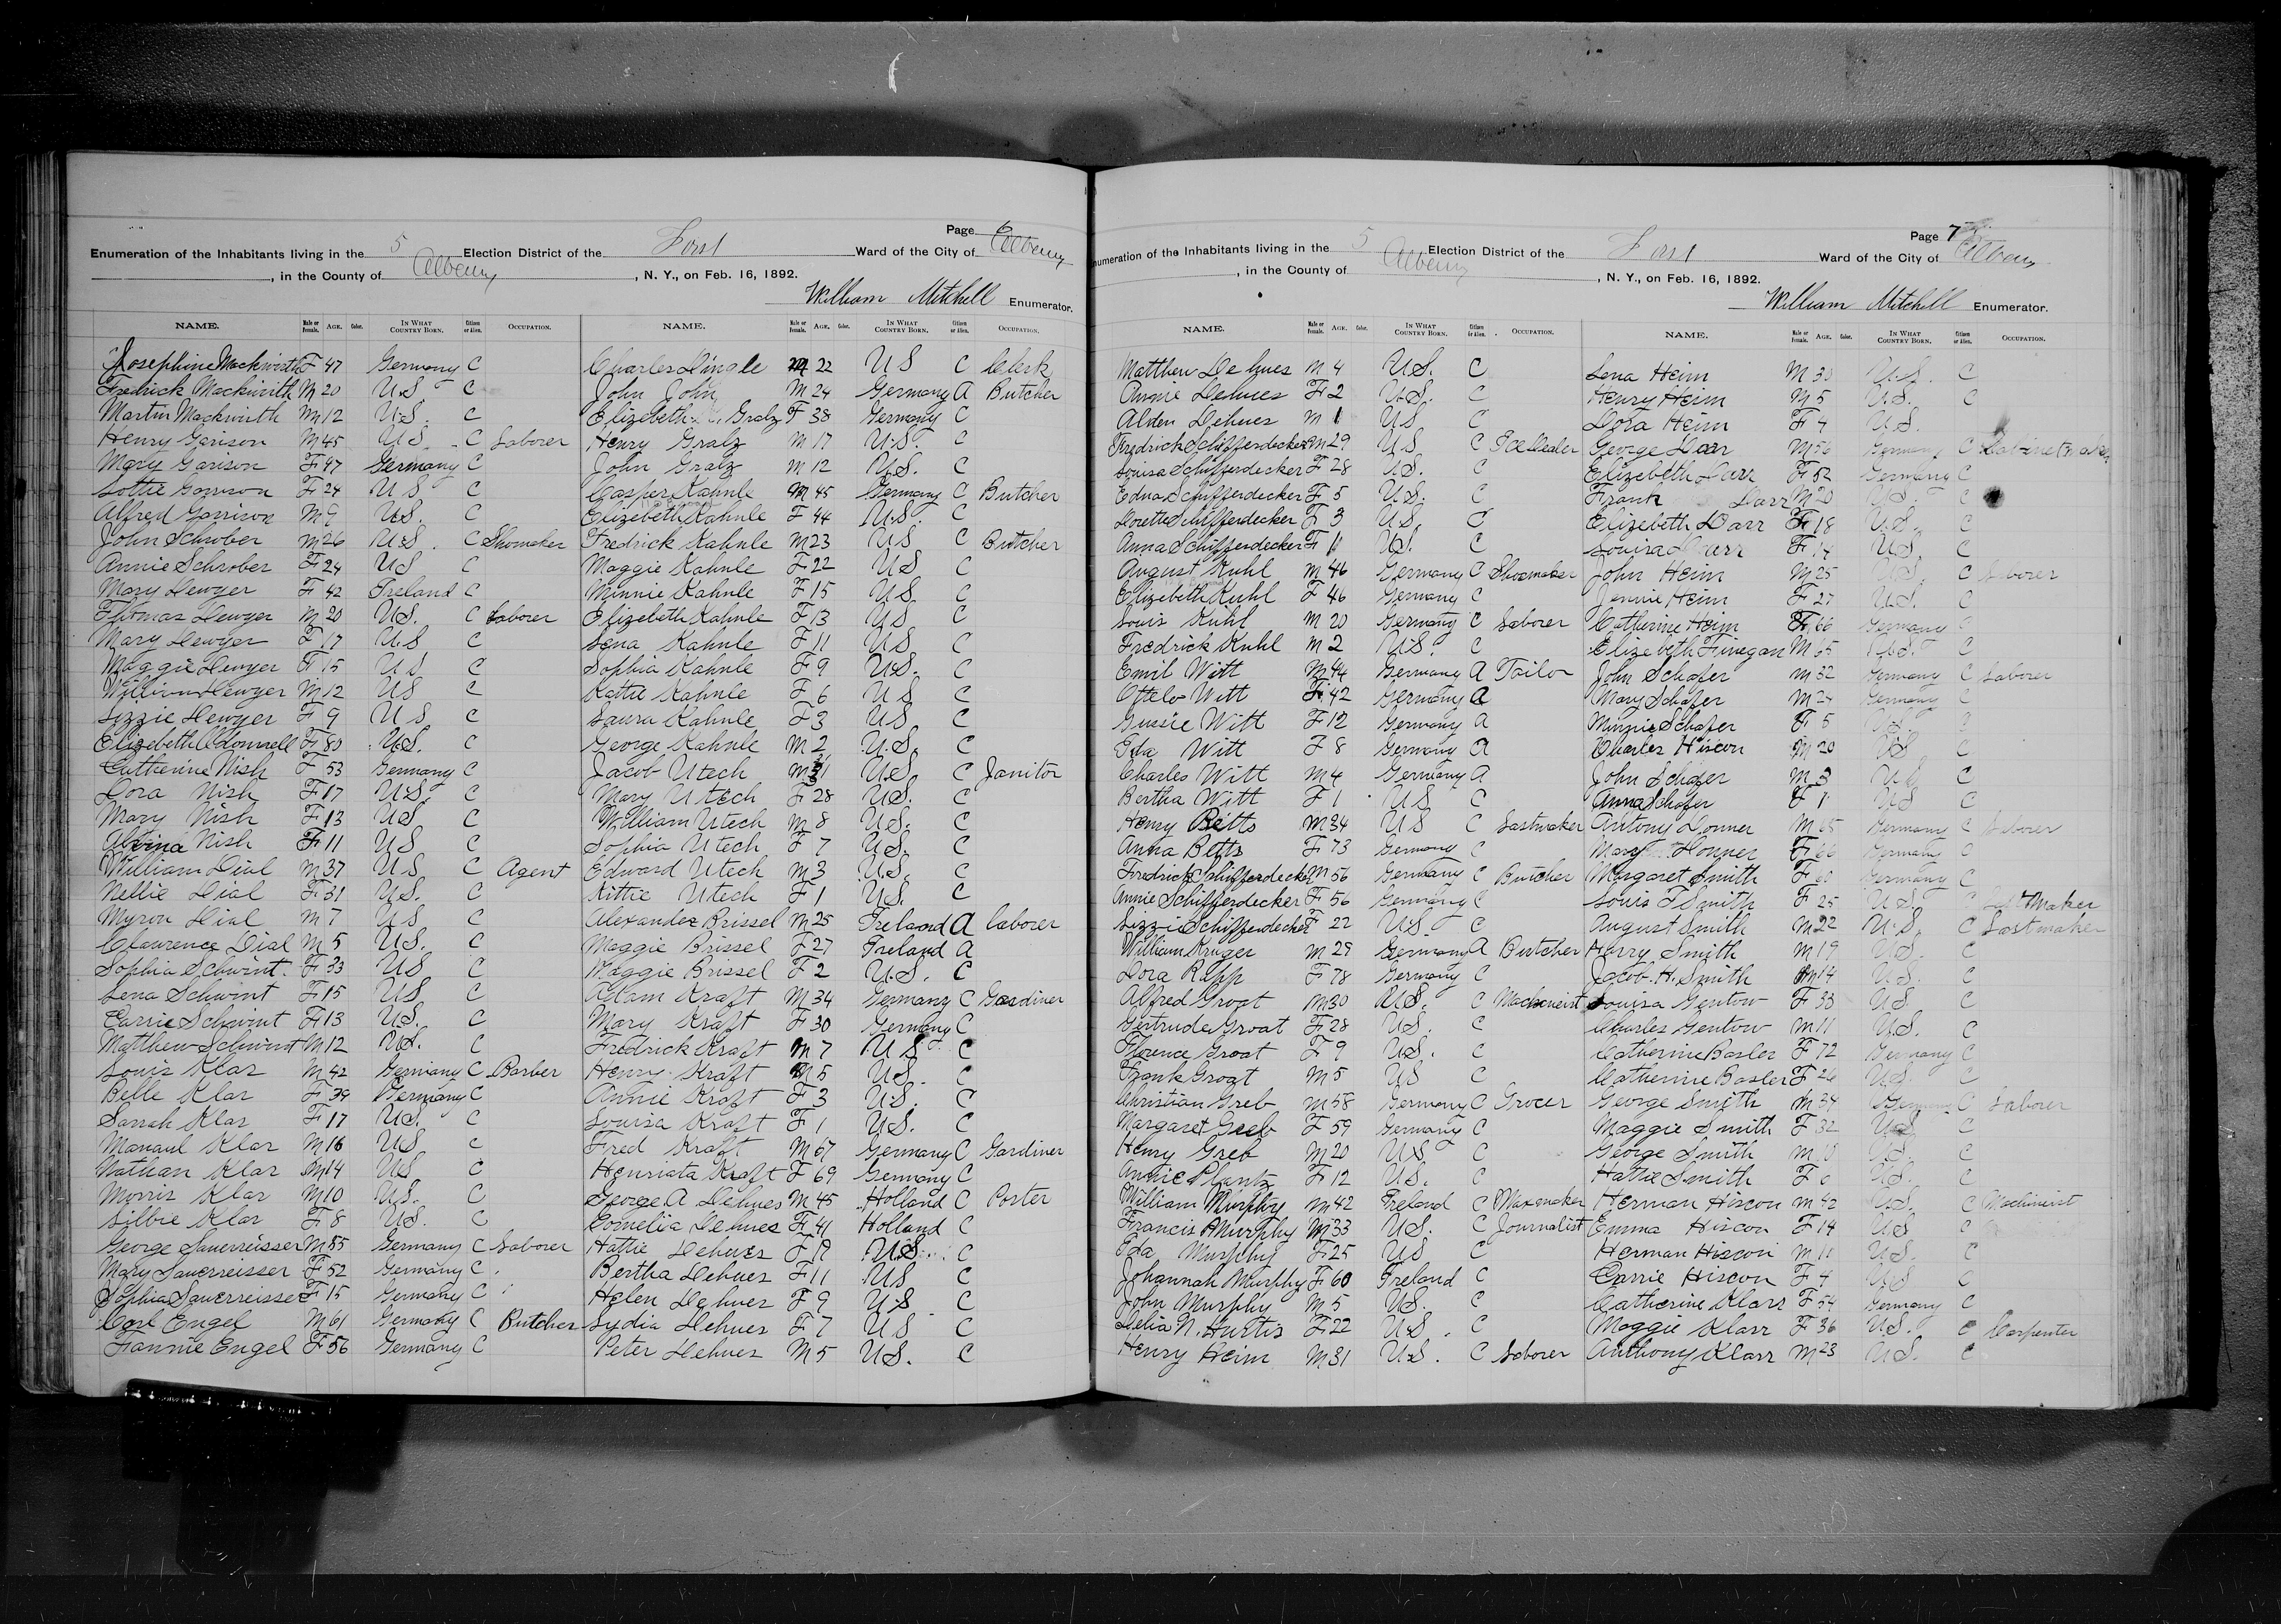 Page
Enumeration of the Inhabitants living in the 5 Election District of the First Ward of the City of Albany
, in the County of Albany , N. Y., on Feb. 16, 1892.
William Mitchell Enumerator.
NAME. Male or Female. AGE. Color. IN WHAT COUNTRY BORN. Citizen or Alien. OCCUPATION. NAME. Male or Female. AGE. Color. IN WHAT COUNTRY BORN. Citizen or Alien. OCCUPATION.
Josephine Mackwirth F 47 Germany C
Fredrick Mackwirth M 20 U.S C
Martin Mackwirth M 12 U.S. C
Henry Garison M 45 U.S. C Laborer
Mary Garison F 47 Germany C
Lottie Garrison F 24 U S C
Alfred Garrison M 9 U.S. C
John Schrober M 26 U.S. C Shomaker
Annie Schrober F 24 U S C
Mary Dewyer F 42 Ireland C
Thomas Dewyer M 20 U.S. C Laborer
Mary Dewyer F 17 U.S C
Maggie Dewyer F 15 U S C
William Dewyer M 12 U S C
Lizzie Dewyer F 9 U S C
Elizebeth Odonnell F 80 U.S. C
Catherine Nish F 53 Germany C
Dora Nish F 17 U.S C
Mary Nish F 13 U S C
Alvina Nish F 11 U S C
William Dial M 37 U S C Agent
Nellie Dial F 31 U.S. C
Myron Dial M 7 U S C
Clawrence Dial M 5 U.S. C
Sophia Schwint. F 33 U S C
Lena Schwint F 15 U S C
Carrie Schwint F 13 U.S. C
Matthew Schwint M 12 U.S. C
Louis Klar M 42 Germany C Barber
Belle Klar F 39 Germany C
Sarrah Klar F 17 U.S. C
Manaul Klar M 16 U.S C
Nathan Klar M 14 U.S C
Morris Klar M 10 U.S. C
Silbie Klar F 8 U.S. C
George Sauerreisser M 55 Germany C Laborer
Mary Sauerreisser F 52 Germany C
Sophia Sauerreisser F 15 Germany C
Carl Engel M 61 Germany C Butcher
Fannie Engel F 56 Germany C
Charles Dingle M 22 U S C Clerk
John John M 24 Germany A Butcher
Elizebeth Gralz F 38 Germany C
Henry Gralz M 17 U.S. C
John Gralz M 12 U.S. C
Casper Kahnle M 45 Germany C Butcher
Elizebeth Kahnle F 44 U.S. C
Fredrick Kahnle M 23 U S C Butcher
Maggie Kahnle F 22 U S C
Minnie Kahnle F 15 U S C
Elizebeth Kahnle F 13 U S C
Lena Kahnle F 11 U S C
Sophia Kahnle F 9 U.S. C
Kattie Kahnle F 6 U S C
Laura Kahnle F 3 U S C
George Kahnle M 2 U.S. C
Jacob Utech M U.S. C Janitor
Mary Utech F 28 U.S. C
William Utech M 8 U.S. C
Sophia Utech F 7 U.S. C
Edward Utech M 3 U.S. C
Kittie Utech F 1 U.S. C
Alexander Brissel M 25 Ireland A laborer
Maggie Brissel F 27 Ireland A
Maggie Brissel F 2 U.S. C
Adam Kraft M 34 Germany C Gardiner
Mary Kraft F 30 Germany C
Fredrick Kraft M 7 U S C
Henry Kraft M 5 U.S. C
Annie Kraft F 3 U.S. C
Louisa Kraft F 1 U.S. C
Fred Kraft M 67 Germany C Gardiner
Henriata Kraft F 69 Germany C
George A Dehues M 45 Holland C Porter
Cornelia Dehues F 41 Holland C
Hattie Dehues F 19 U.S. C
Bertha Dehues F 11 U.S C
Helen Dehues F 9 U.S C
Lydia Dehues F 7 U S C
Peter Dehues M 5 U.S. C
Page 7
Enumeration of the Inhabitants living in the 5 Election District of the First Ward of the City of Albany
, in the County of Albany , N. Y., on Feb. 16, 1892.
William Mitchell Enumerator.
NAME. Male or Female. AGE. Color. IN WHAT COUNTRY BORN. Citizen or Alien. OCCUPATION. NAME. Male or Female. AGE. Color. IN WHAT COUNTRY BORN. Citizen or Alien. OCCUPATION.
Matthew Dehues M 4 U.S. C
Annie Dehues F 2 U.S. C
Alden Dehues M 1 U S C
Fredrick Schifferdecker M 29 U S C Ice Dealer
Louisa Schifferdecker F 28 U.S. C
Edna Schifferdecker F 5 U.S. C
Lorette Schifferdecker F 3 U.S. C
Anna Schifferdecker F 11 U.S. C
August Kuhl M 46 Germany C Shoemaker
Elizebeth Kuhl F 46 Germany C
Louis Kuhl M 20 Germany C Laborer
Fredrick Kuhl M 2 U.S. C
Emil Witt M 44 Germany A Tailor
Ottelo Witt F 42 Germany A
Gusice Witt F 12 Germany A
Ida Witt F 8 Germany A
Charles Witt M 4 Germany A
Bertha Witt F 1 U S C
Henry Betts M 34 U S C Lastmaker
Anna Betts F 73 Germany C
Fredrick Schifferdecker M 56 Germany C Butcher
Annie Schifferdecker F 56 Germany C
Lizzie Schifferdecker F 22 U.S. C
William Kruger M 29 Germany A Butcher
Dora Rapp F 78 Germany C
Alfred Groat M 30 U.S. C Machineist
Gertrude Groat F 28 U.S. C
Florence Groat F 9 U.S. C
Frank Groat M 5 U S C
Christian Greb M 58 Germany C Grocer
Margaret Greb F 59 Germany C
Henry Greb M 20 U S C
Annie Plantz F 12 U.S. C
William Murphy M 42 Ireland C
Francis Murphy M 33 U.S. C Journalist
Ida Murphy F 25 U S C
Johannah Murphy F 60 Ireland C
John Murphy M 5 U.S. C
Delia N. Hurtis F 22 U.S. C
Henry Heim M 31 U.S. C Laborer
Lena Heim M 30 U.S. C
Henry Heim M 5 U.S. C
Dora Heim F 4 U.S.
George Darr M 56 Germany C Cabinetmaker
Elizebeth Darr F 52 Germany C
Frank Darr M 20 U.S. C
Elizebeth Darr F 18 U.S. C
Louisa Darr F 14 U.S. C
John Heim M 25 U.S. C Laborer
Jennie Heim F 27 U.S. C
Catherine Heim F 66 Germany C
Elizebeth Finegan M 65 U.S. C
John Schafer M 32 Germany C Laborer
Mary Schafer M 24 Germany C
Minnie Schafer F 5
Charles Hiscon M 20 U S C
John Schafer M 3 U S C
Anna Schafer F 1 U S C
Antony Donner M 65 Germany C Laborer
Mary Donner F 66 Germany C
Margaret Smith F 60 Germany C
Louis F Smith F 25 U.S. C Lastmaker
August Smith M 22 U.S. C Lastmaker
Harry Smith M 19 U.S. C
Jacob H. Smith M 14 U.S. C
Louisa Gentow F 33 U S C
Charles Gentow M 11 U.S. C
Catherine Basler F 72 Germany C
Catherine Basler F 26 U.S. C
George Smith M 34 Germany C Laborer
Maggie Smith F 32 U.S C
George Smith M U.S. C
Hattie Smith F U.S. C
Herman Hiscon M 42 U.S. C Machineist
Emma Hiscon F 14 U.S C
Herman Hiscon M 11 U.S. C
Carrie Hiscon F 4 U.S C
Catherine Klarr F 54 Germany C
Maggie Klarr F 36 U.S. C Carpenter
Anthony Klarr M 23 U.S. C